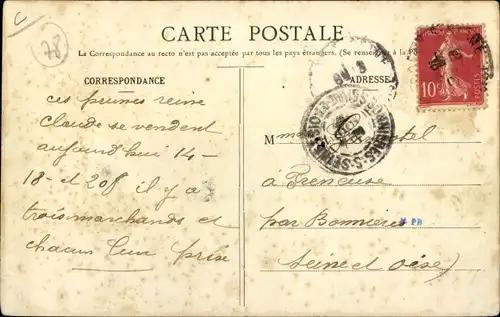 C
78
CARTE POSTALE
La Correspondance au recto n'est pas acceptée par tous les pays étrangers. (Se renseigner à la
CORRESPONDANCE
ADRESSE
10c
POSTES
ces prunes reine
Claude se vendent
aujourd'hui 14-
18- et 20f il y a
trois marchands et
chacun leur prise
M
a Freneuse
par Bonnières
PB
Seine et Oise)